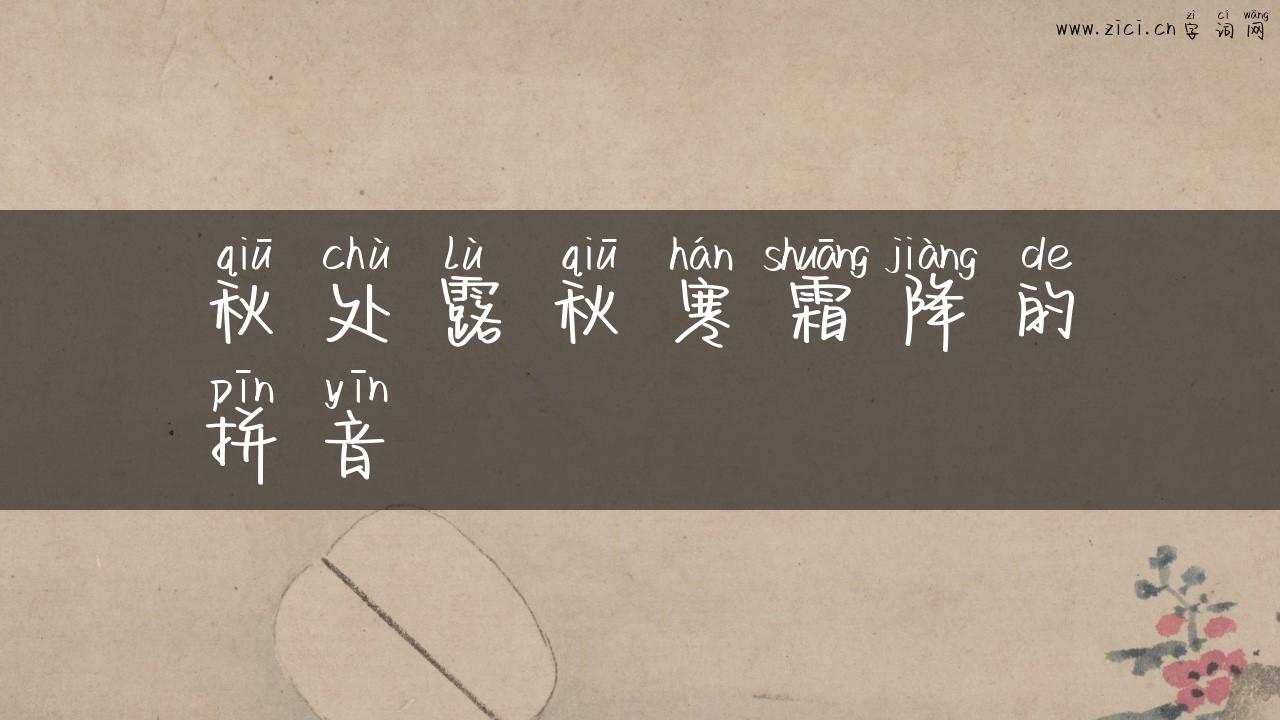 zì cí wǎng
www.zici.cn 字 词 网
qiū chù lù qiū hán shuāng jiàng de
秋 处 露 秋 寒 霜 降 的
pīn yīn
拼 音